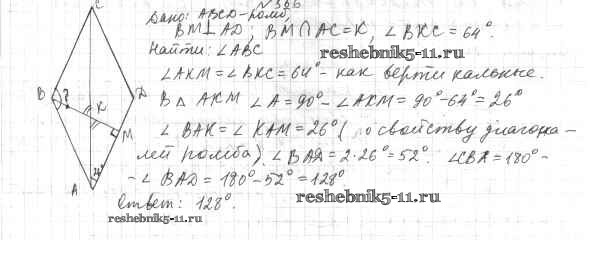 №366
Дано: ABCD-ромб,
BM⊥AD; BM∩AC=K, ∠BKC=64°.
Найти: ∠ABC
reshebnik5-11.ru
∠AKM=∠BKC=64°- как вертикальные.
В △ AKM ∠A=90°-∠AKM=90°-64°=26°
∠BAK=∠KAM=26° (по свойству диагона-
лей ромба), ∠BAD=2·26°=52°. ∠CBA=180°-
-∠BAD=180°-52°=128°
Ответ: 128°.
reshebnik5-11.ru
reshebnik5-11.ru
C
B
?
K
D
M
A